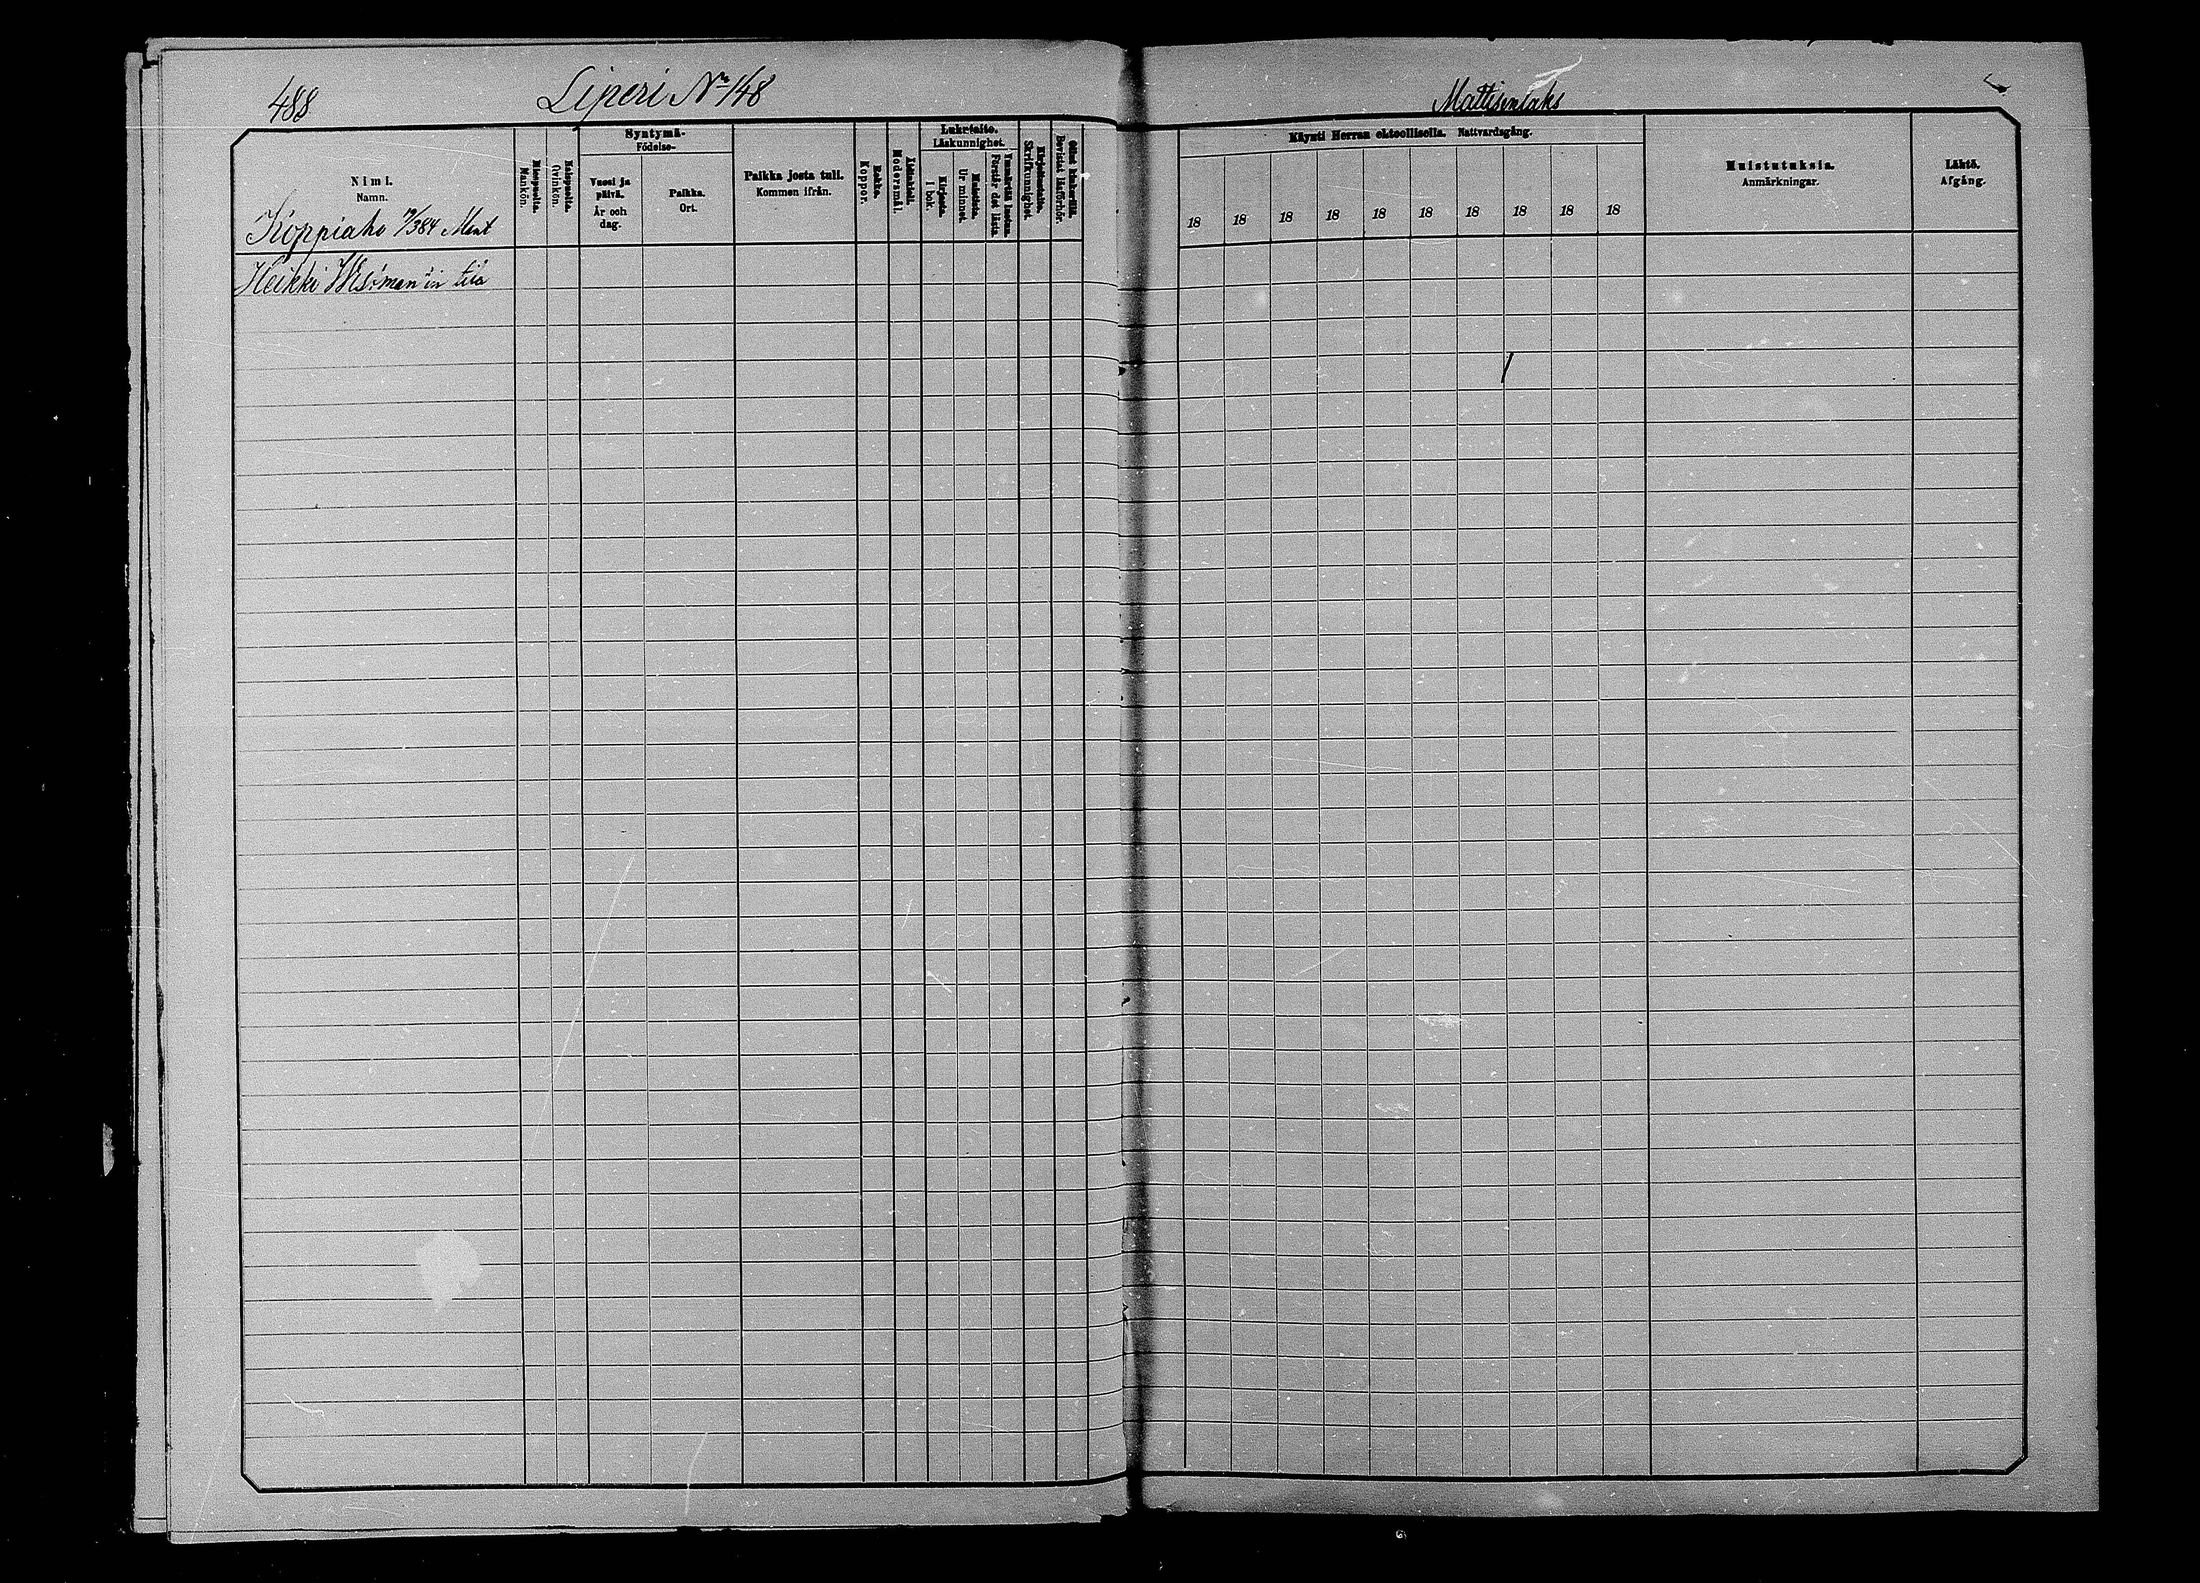 488
Liperi No 148
Mattisenlaks
Nimi.
Namn.
Miespuolta.
Mankön.
Vaimpuolta.
Qvinkön.
Syntymä-
Födelse-
Vuosi ja päivä.
År och dag.
Paikka.
Ort.
Paikka josta tuli.
Kommen ifrån.
Rokko.
Koppor.
Äidinkieli.
Modersmål.
Lukutaito.
Läskunnighet.
Kirjasta.
I bok.
Muistista.
Ur minnet.
Ymmärtää luetun.
Förstår det lästa.
Kirjoitustaito.
Skrifkunnighet
Ollut lukusilla.
Bevistat läsförhör.
Käynti Herran ehtoollisella. Nattvardsgång.
18 18 18 18 18 18 18 18 18 18
Muistutuksia.
Anmärkningar.
Lähtö.
Afgång.
Koppiaho /384 Mant
Heikki
tila